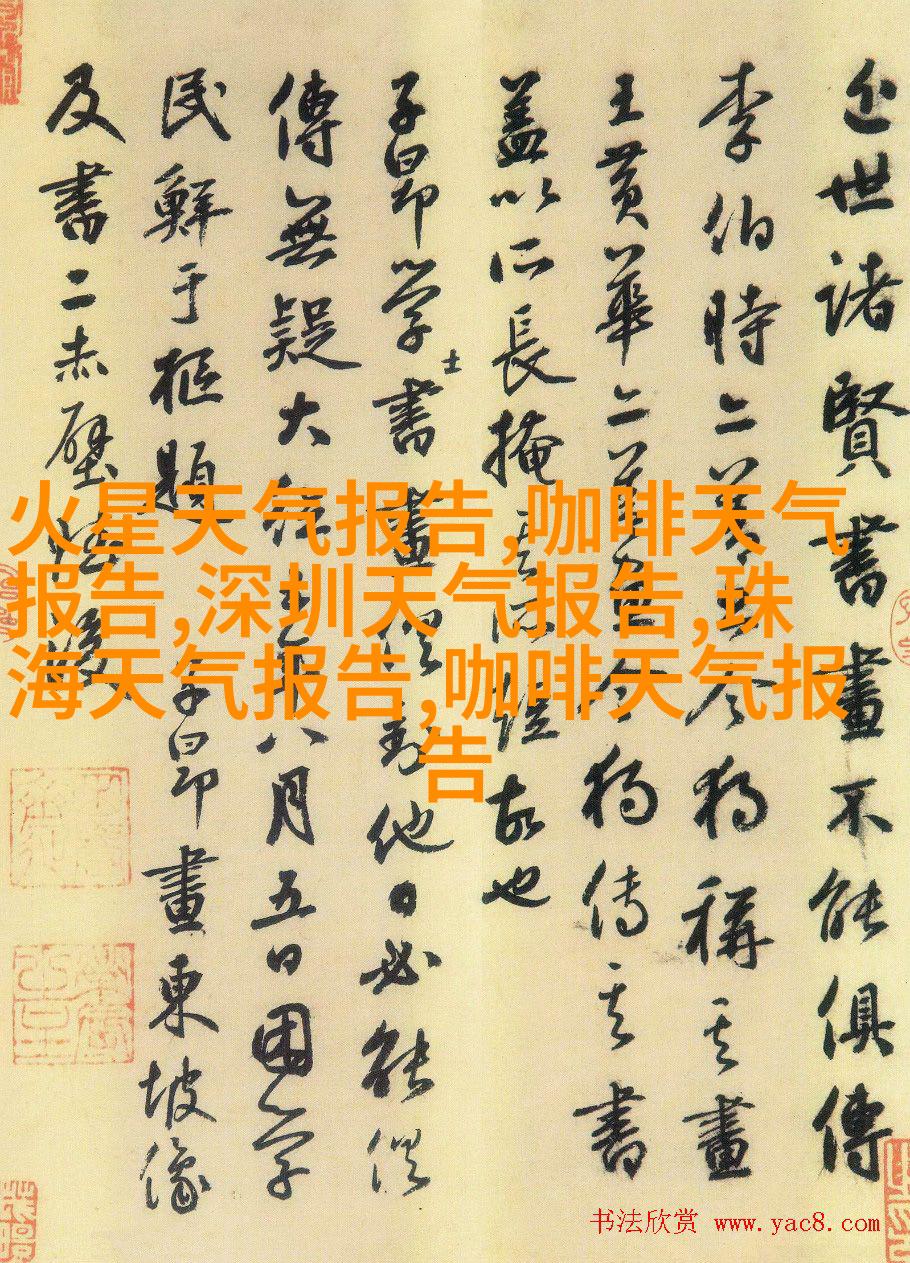 近世諸賢書畫不能俱傳
李伯時二今獨稱其畫
王黃華二今獨傳其書
蓋以所長掩故也
子昂學士書畫俱到他日必能俱
傳無疑大年八月五日困學
民鮮于樞題子昂畫東坡像
及書二赤壁
火星天气报告,咖啡天气
报告,深圳天气报告,珠
海天气报告,咖啡天气报
告
书法欣赏 www.yac8.com